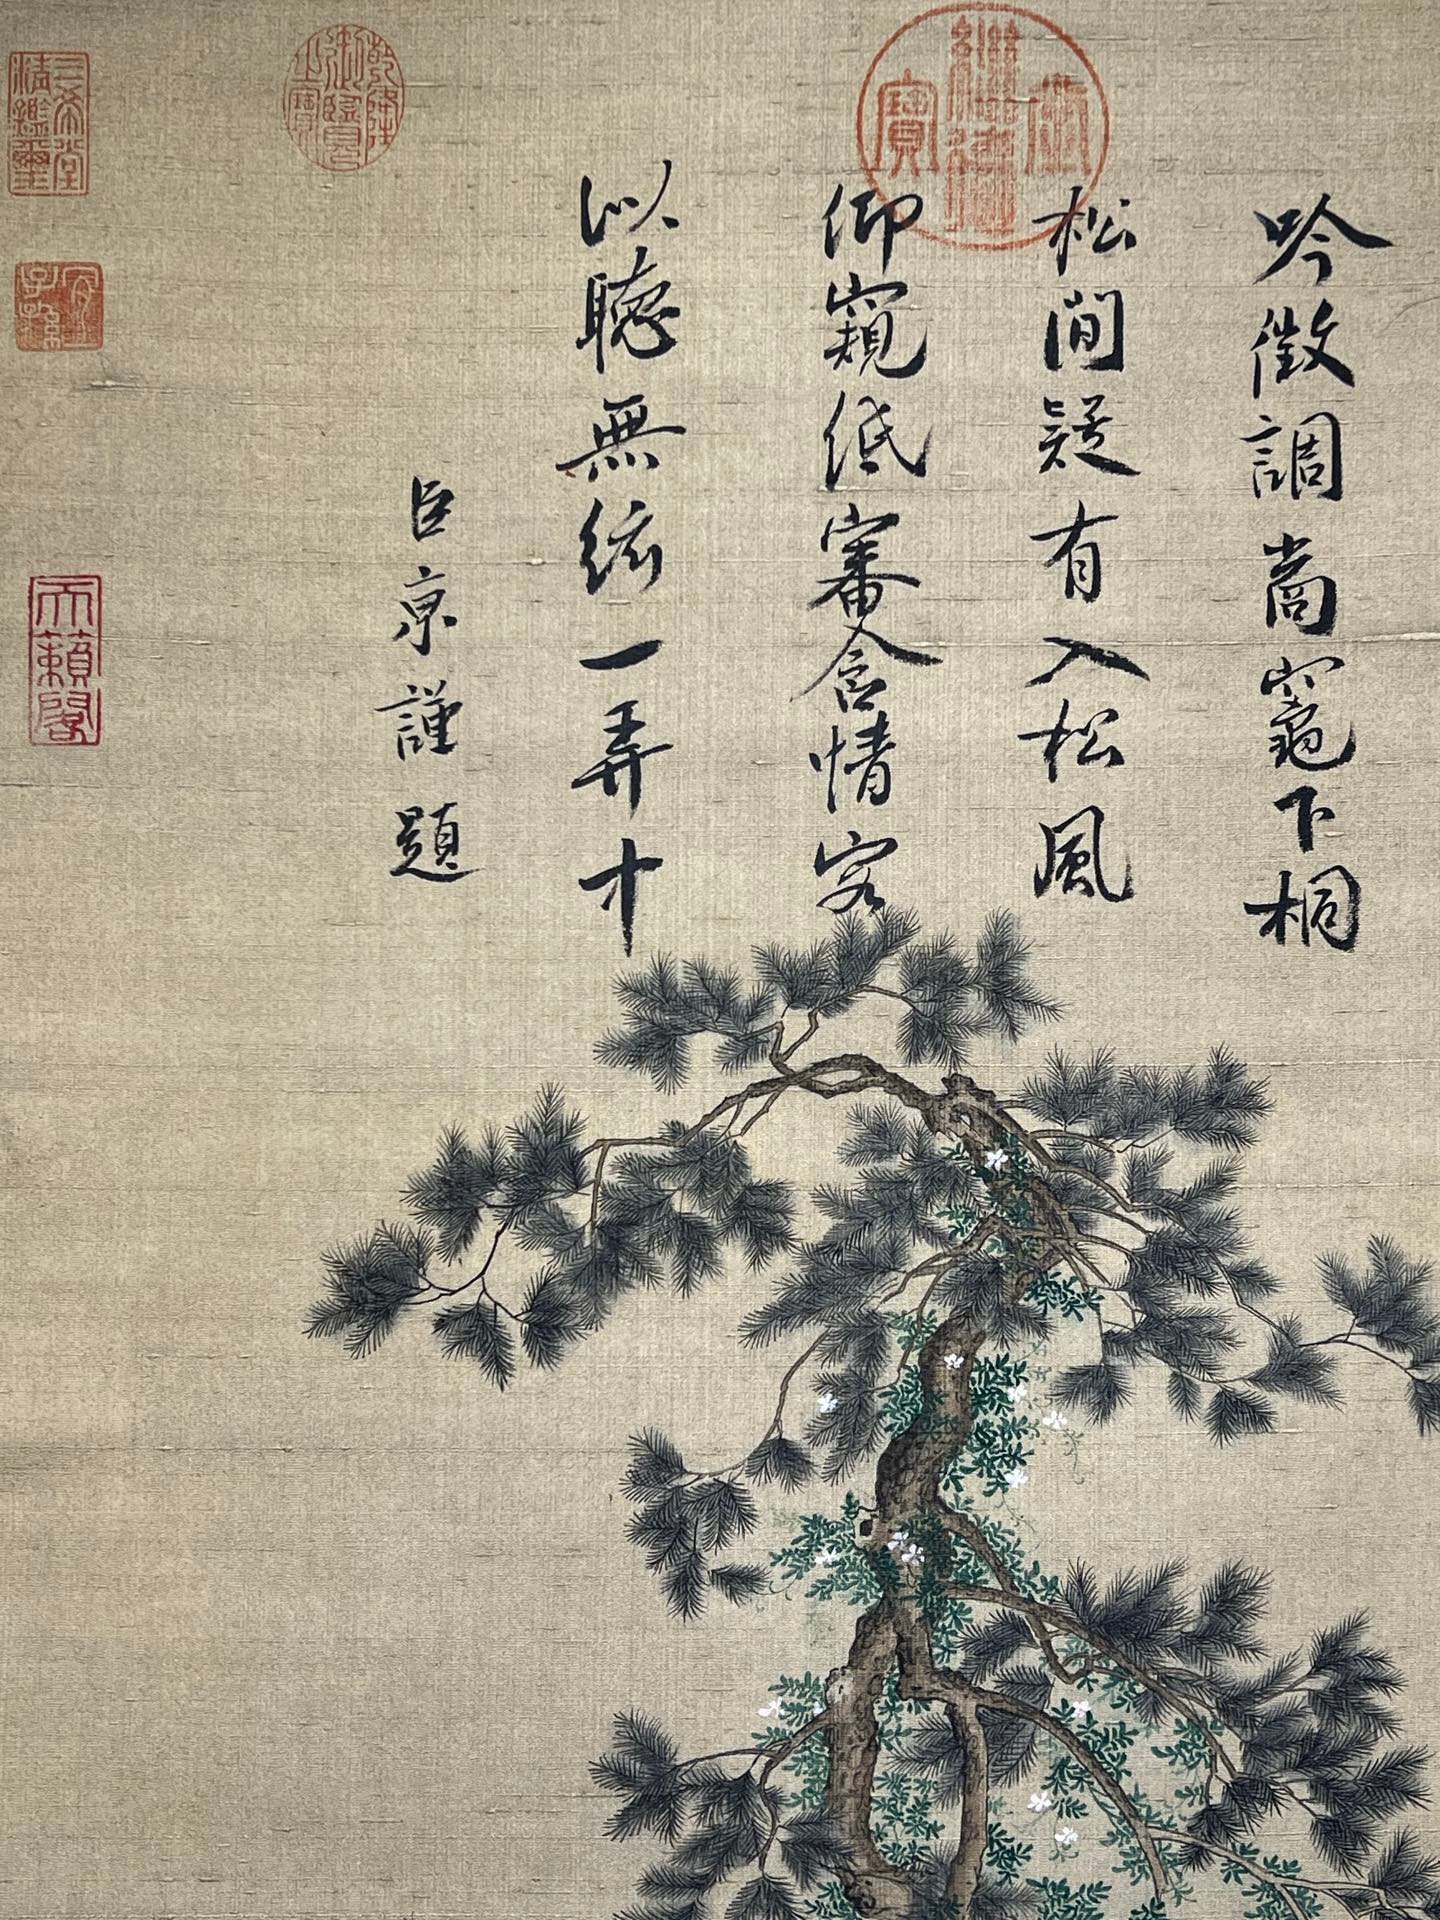 吟徵調商竈下桐
松間疑有入松風
仰窺低審含情客
以聽無絃一弄中
臣京謹題
乾隆御覽之寶
三希堂精鑑璽
宜子孫
天籟閣